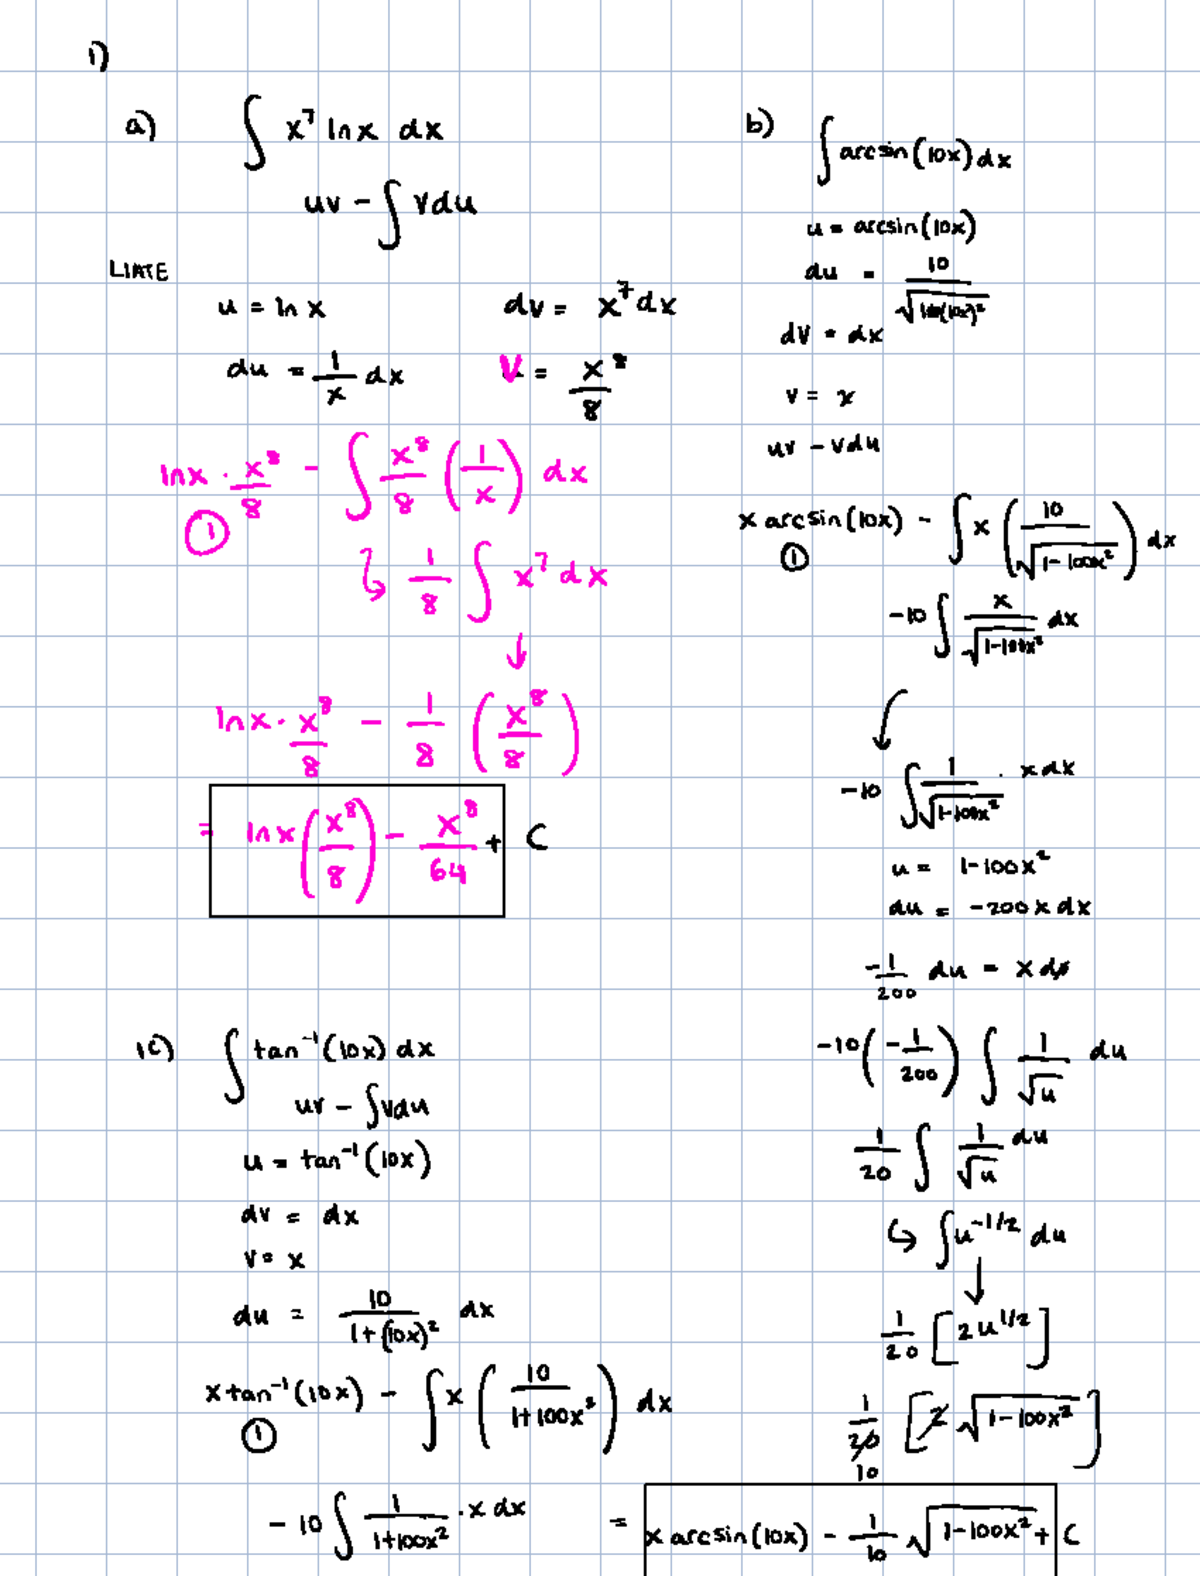 1)
a) ∫ x⁷ ln x dx
uv - ∫ vdu
LIATE
u = ln x    dv = x⁷ dx
du = 1/x dx    v = x⁸/8
ln x · x⁸/8 - ∫ x⁸/8 (1/x) dx
①
↳ 1/8 ∫ x⁷ dx
↓
ln x · x⁸/8 - 1/8 (x⁸/8)
= ln x (x⁸/8) - x⁸/64 + C
b) ∫ arcsin(10x) dx
u = arcsin(10x)
du = 10/√
dv = dx
v = x
uv - vdu
x arcsin(10x) - ∫ x (10/√(1-100x²)) dx
①
-10 ∫ x/√(1-100x²) dx
↓
-10 ∫ 1/√(1-100x²) · x dx
u = 1-100x²
du = -200x dx
-1/200 du = x dx
-10(-1/200) ∫ 1/√u du
1/20 ∫ 1/√u du
↳ ∫ u^(-1/2) du
↓
1/20 [2u^(1/2)]
1/20 [2 √(1-100x²)]
10
= x arcsin(10x) - 1/10 √(1-100x²) + C
1c) ∫ tan⁻¹(10x) dx
uv - ∫vdu
u = tan⁻¹(10x)
dv = dx
v = x
du = 10/(1+(10x)²) dx
x tan⁻¹(10x) - ∫ x (10/(1+100x²)) dx
①
-10 ∫ 1/(1+100x²) · x dx